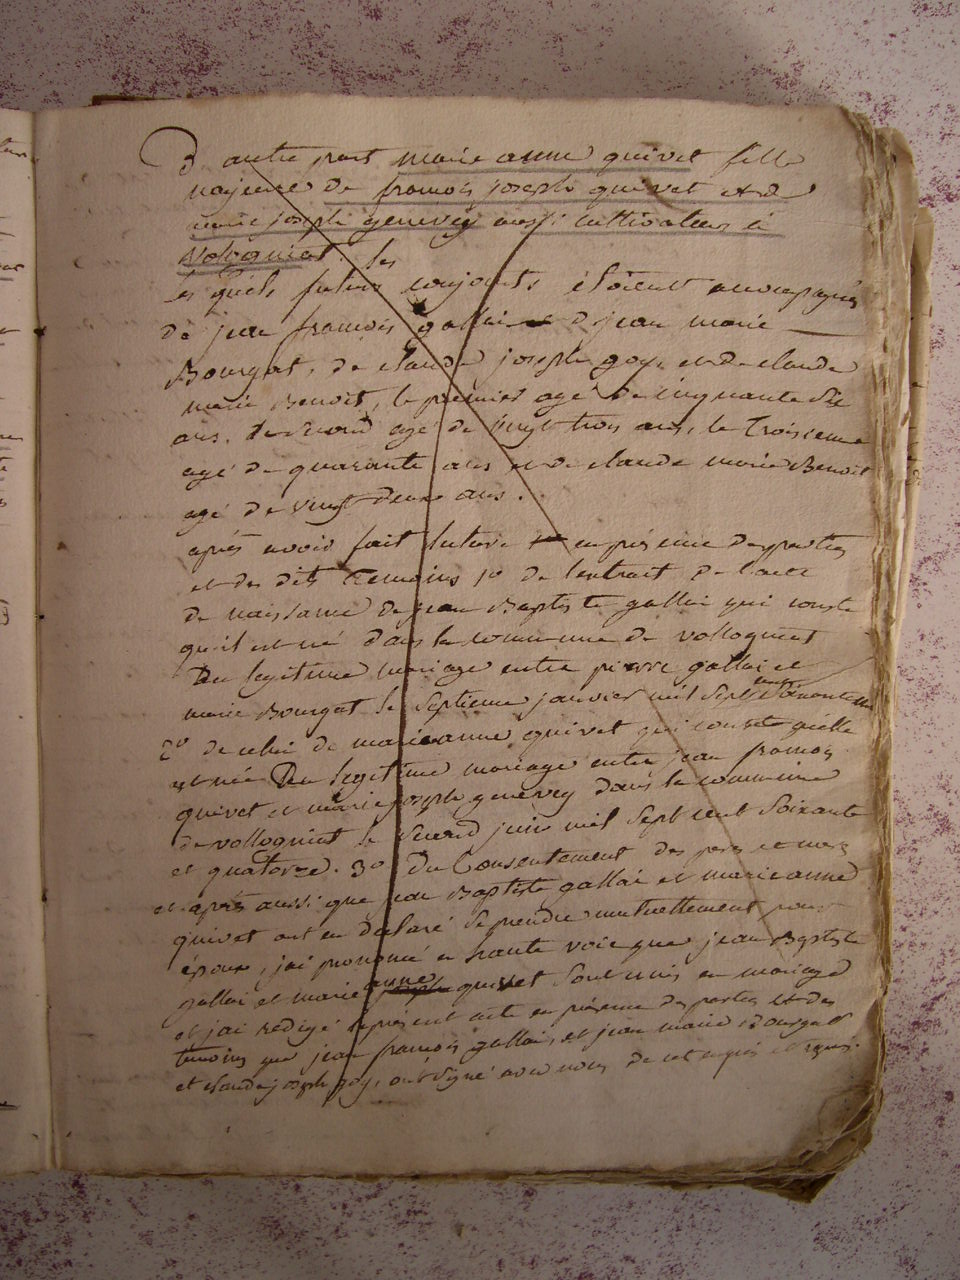 D autre part marie anne quivet fille
majeure de francois joseph quivet et de
marie joseph genevey aussi cultivateurs à
vologniat les
les quels futurs conjoints étoient accompagnés
de jean francois gallai et d jean marie
Bourgat, de claude joseph goy, et de claude
marie Benoit, le premier agé de cinquante six
ans, le second agé de vingt trois ans, le troisieme
agé de quarante ans et de claude marie Benoit
agé de vingt deux ans.
après avoir fait lecture en présence des parties
et des dits temoins 1o de lextrait de l'acte
de naissance de jean Baptiste gallai qui conste
qu'il est né dans la commune de vollogniat
Du legitime mariage entre pierre gallai et
marie Bourgat le septieme janvier mil sept cent
2o de celui de marie anne quivet qui conste quelle
est née Du legitime mariage entre jean francois
quivet et marie joseph genevey dans la commune
de vollogniat le second juin mil sept cent soixante
et quatorze. 3o Du Consentement des peres et meres
et après aussi que jean Baptiste gallai et marie anne
quivet ont eu declaré se prendre mutuellement pour
époux, j'ai prononcé en haute voie que jean Baptiste
gallai et marie anne quivet sont unis en mariage
et j'ai redigé le présent acte en présence des parties et des
temoins que jean francois gallai, et jean marie Bourgat
et claude joseph goy, ont signé avec nous de ce enquis et requis.